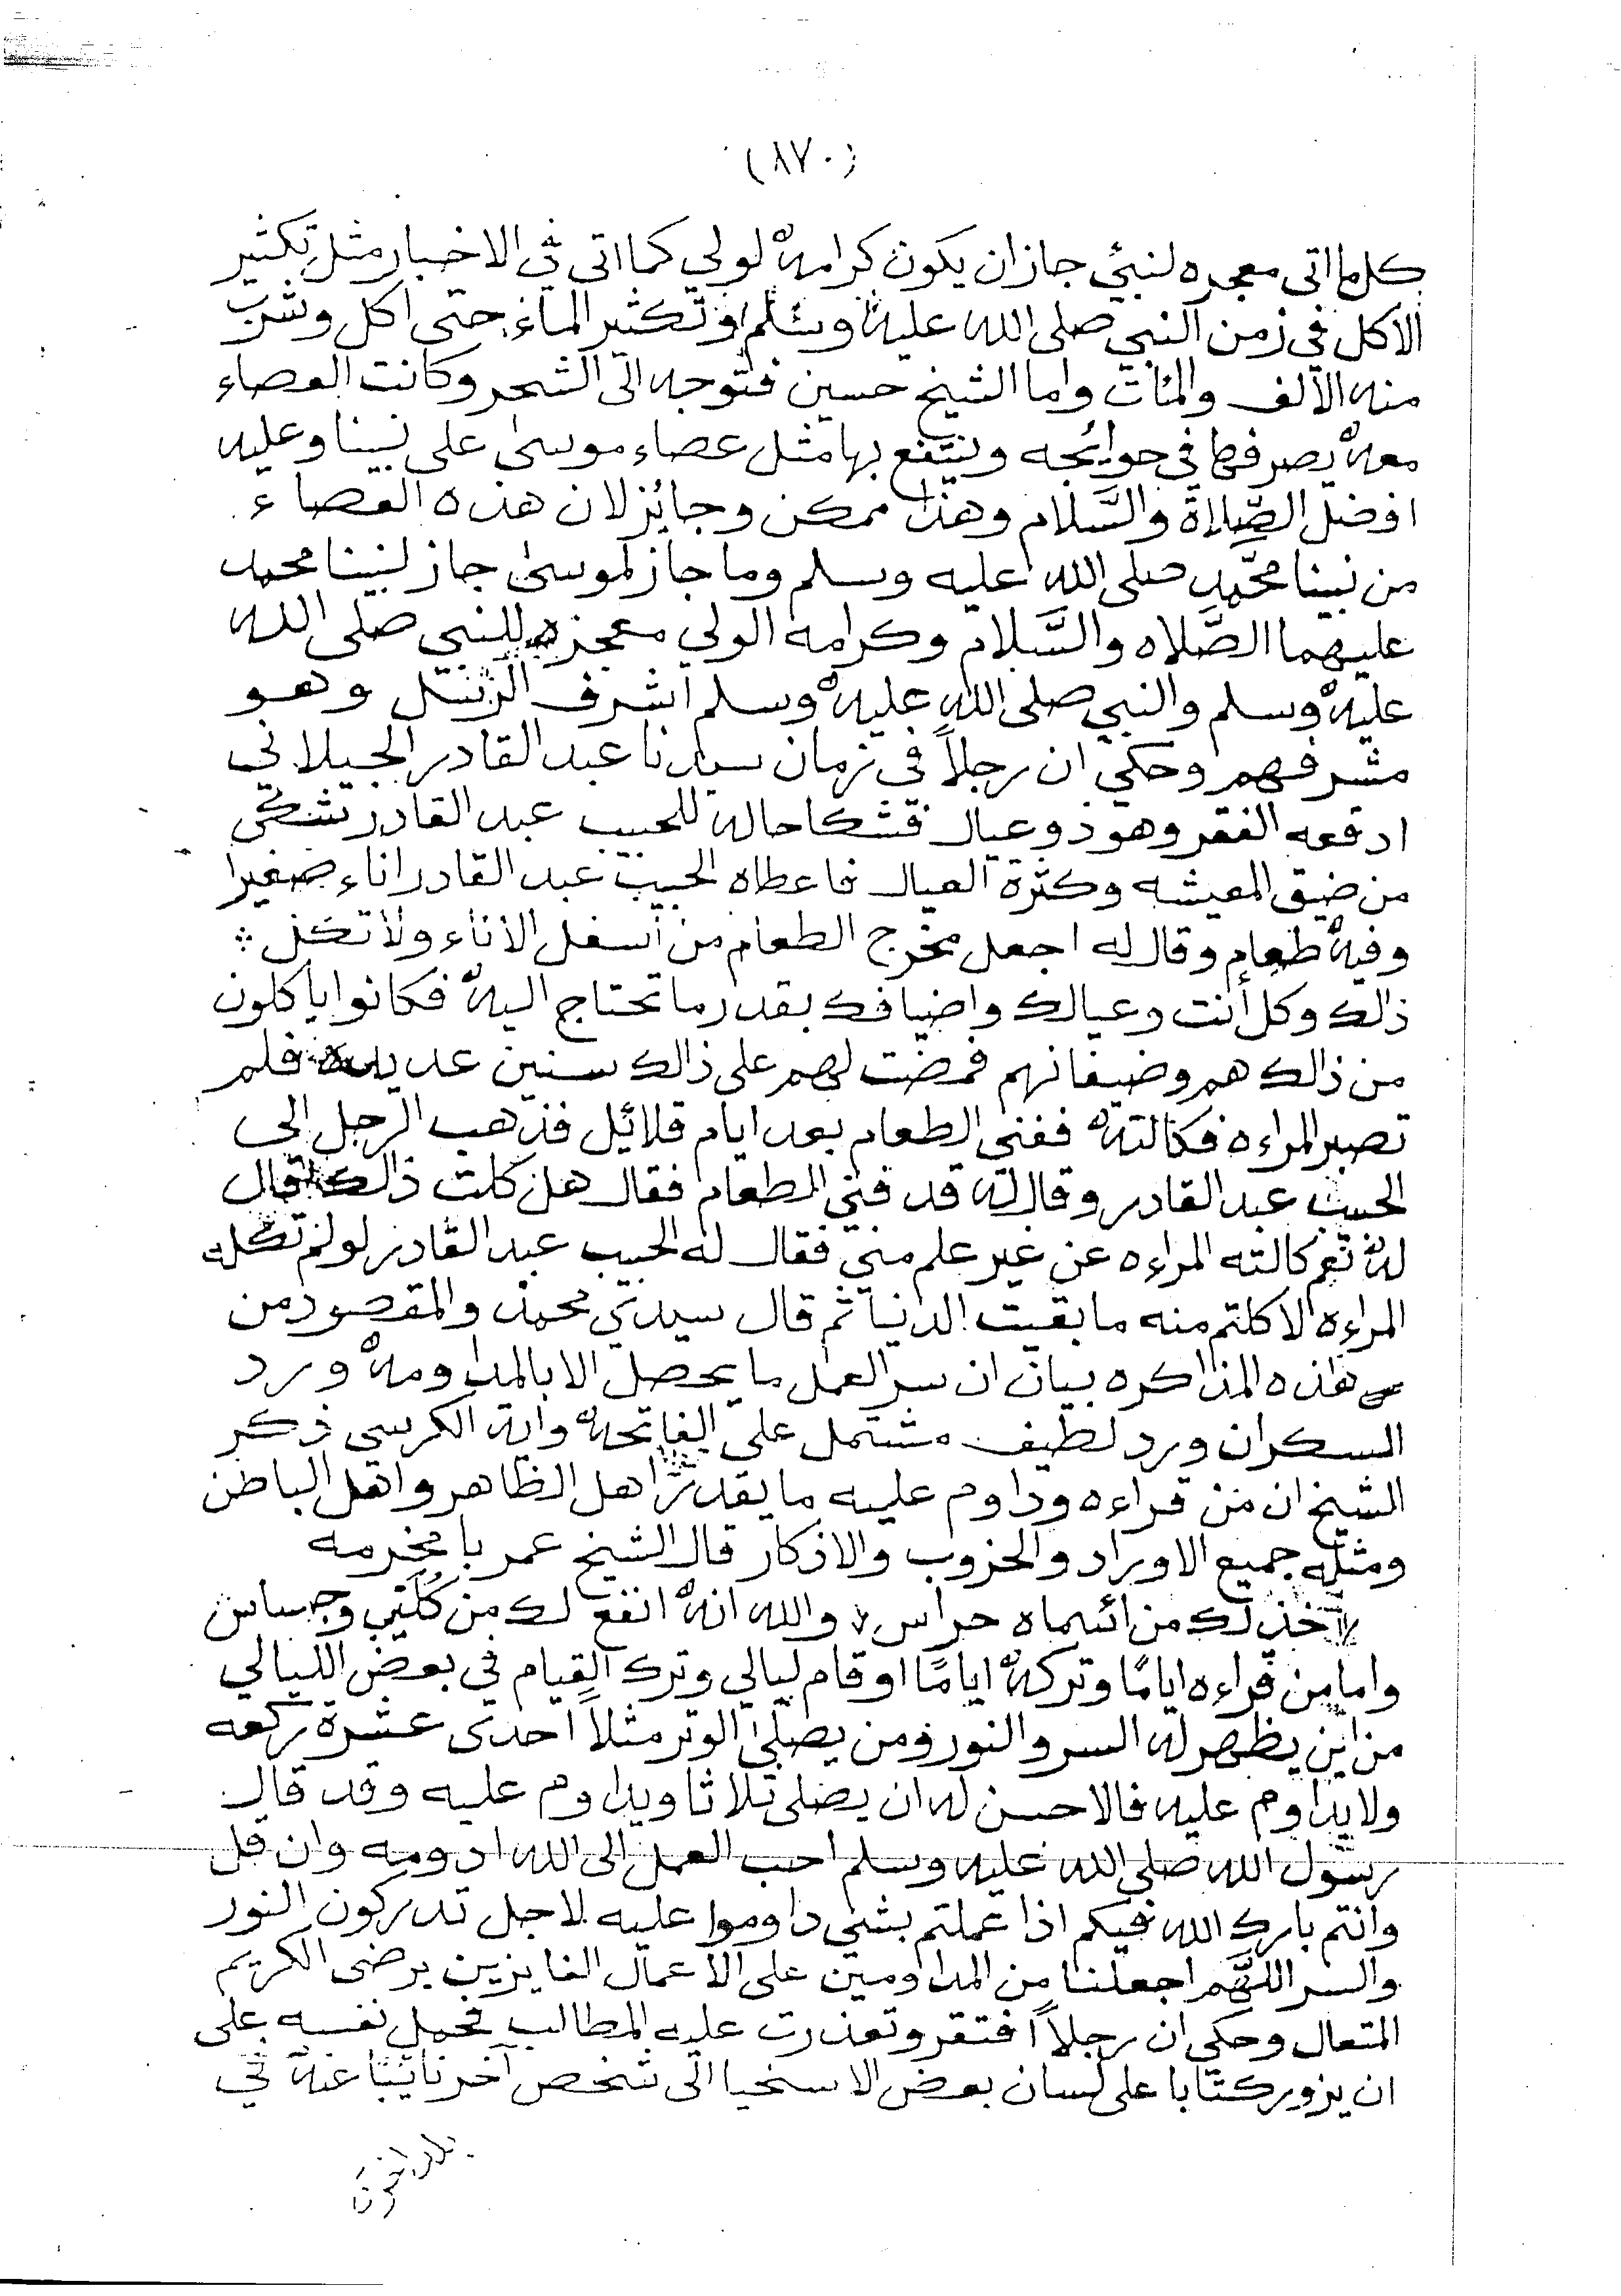 (٨٧٠)
كلما اتى معجزه لنبئ جاز ان يكون كرامة لولي كما اتى في الاخبار مثل تكثير
الاكل في زمن النبي صلى الله عليه وسلم او تكثير الماء حتى اكل وشرب
منه الالف والمئات واما الشيخ حسين فتوجه الى الشحر وكانت العصاء
معه يصرفها في حوايجه وينتفع بها مثل عصاء موسى على نبينا وعليه
افضل الصلاة والسلام وهذا ممكن وجايز لان هذه العصاء
من نبينا محمد صلى الله عليه وسلم وما جاز لموسى جاز لنبينا محمد
عليهما الصلاه والسلام وكرامة الولي معجزه للنبي صلى الله
عليه وسلم والنبي صلى الله عليه وسلم اشرف الرسل وهو
مشرفهم وحكي ان رجلاً في زمان سيدنا عبد القادر الجيلاني
ادقعه الفقر وهو ذو عيال فشكا حاله للحبيب عبد القادر تشكى
من ضيق المعيشه وكثرة العيال فاعطاه الحبيب عبد القادر اناء صغيرا
وفيه طعام وقال له اجعل مخرج الطعام من اسفل الاناء ولا تكل
ذالك وكل أنت وعيالك واضيافك بقدر ما تحتاج اليه فكانوا ياكلون
من ذالك هم وضيفانهم فمضت لهم على ذالك سنين عديده فلم
تصبر المراءه فكالته ففني الطعام بعد ايام قلائل فذهب الرجل الى
الحبيب عبد القادر وقال له قد فني الطعام فقال هل كلت ذالك قال
له نعم كالته المراءه عن غير علم مني فقال له الحبيب عبد القادر لو لم تكله
المراءه لاكلتم منه ما بقيت الدنيا ثم قال سيدي محمد والمقصود من
هذه المذاكره بيان ان سر العمل ما يحصل الا بالمداومة ورد
السكران ورد لطيف مشتمل على الفاتحه واية الكرسي ذكر
الشيخ ان من قراءه وداوم عليه ما يقدر اهل الظاهر واهل الباطن
ومثله جميع الاوراد والحزوب والاذكار قال الشيخ عمر بامخرمه
خذ لك من ائسماه حراس والله انه انفع لك من كلتي وجساس
واما من قراءه اياما وتركه اياما او قام ليالي وترك القيام في بعض الليالي
من اين يظهر له السر والنور ومن يصلي الوتر مثلاً احدى عشرة ركعه
ولا يداوم عليه فالاحسن له ان يصلى ثلاثا ويداوم عليه وقد قال
رسول الله صلى الله عليه وسلم احب العمل الى الله ادومه وان قل
وانتم بارك الله فيكم اذا عملتم بشى داوموا عليه لاجل تدركون النور
والسر اللهم اجعلنا من المداومين على الاعمال الفايزين برضى الكريم
المتعال وحكي ان رجلاً افتقر وتعذرت عليه المطالب فحمل نفسه على
ان يزور كتابا على لسان بعض الاسخيا الى شخص آخر نايبا عنه في